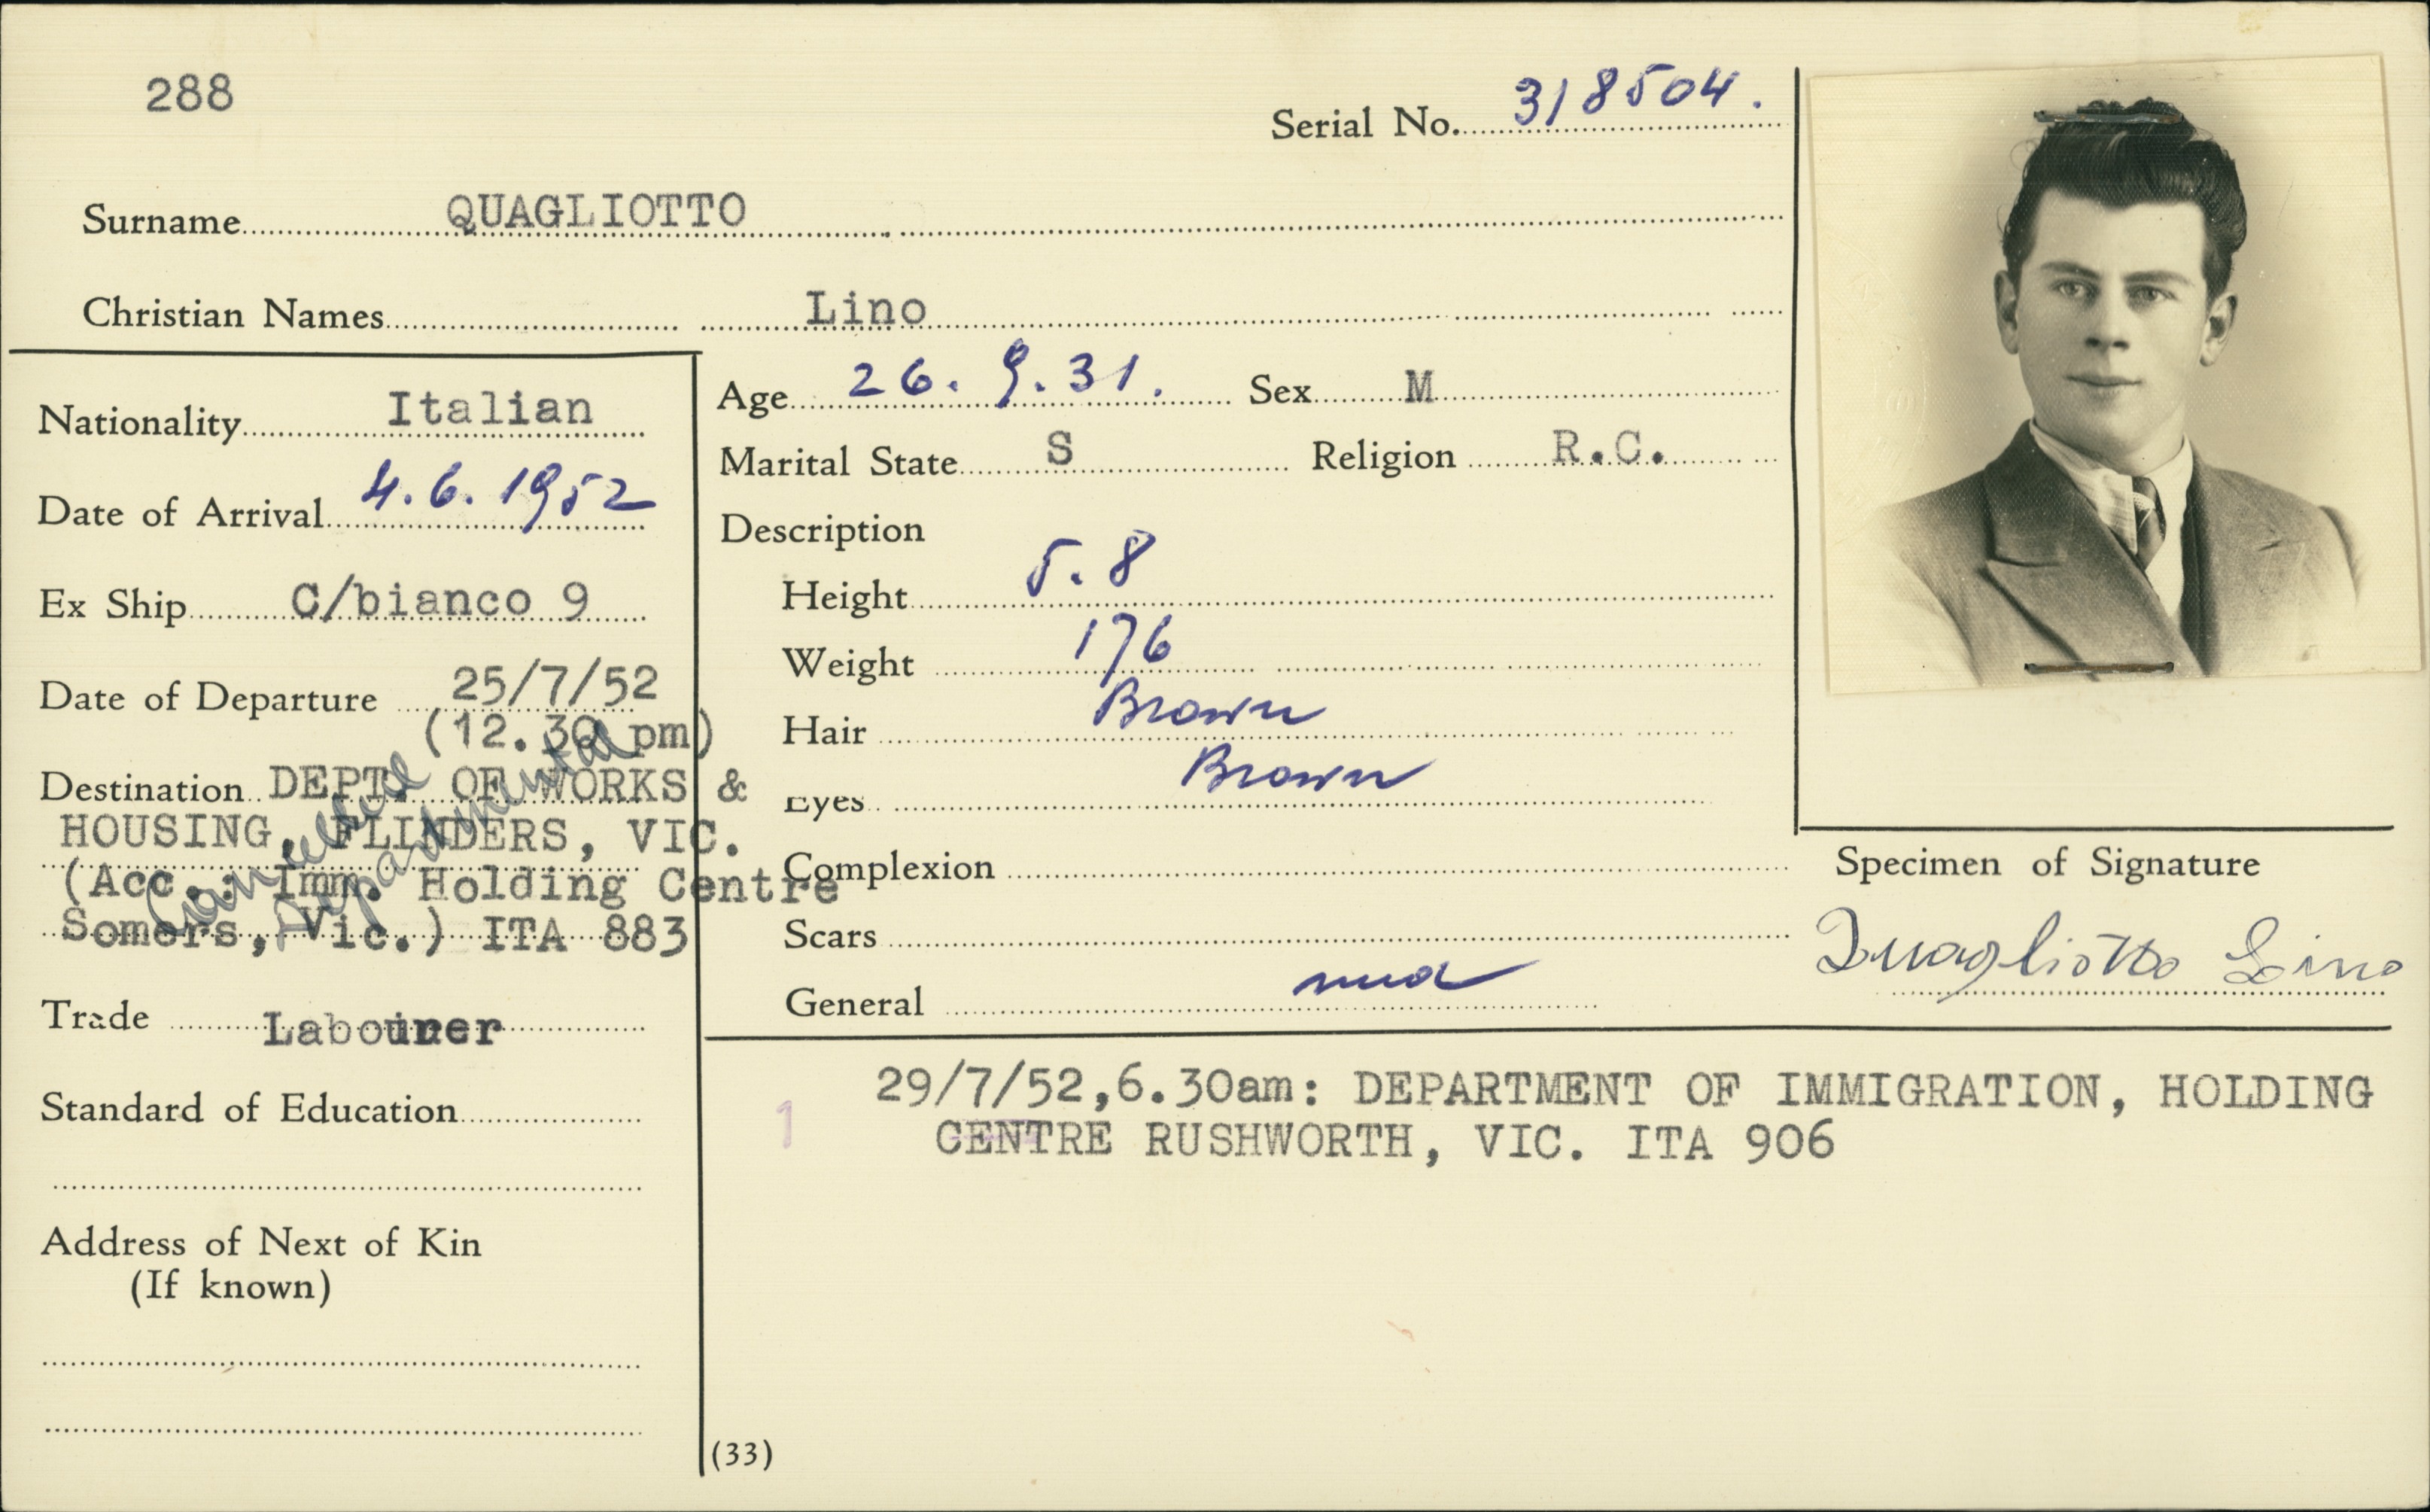 288
Serial No. 318504.
Surname QUAGLIOTTO
Christian Names Lino
Nationality Italian
Date of Arrival 4.6.1952
Ex Ship C/bianco 9
Date of Departure 25/7/52
(12.30 pm)
Destination DEPT. OF WORKS &
HOUSING, FLINDERS, VIC.
(Acc.: Imm. Holding Centre
Somers, Vic.) ITA 883
Cancelled
Departmental
Trade Labourer
Standard of Education
Address of Next of Kin
(If known)
Age 26.9.31. Sex M
Marital State S Religion R.C.
Description
Height 5.8
Weight 176
Hair Brown
Eyes Brown
Complexion
Scars
General
Specimen of Signature
Quagliotto Lino
1
29/7/52,6.30am: DEPARTMENT OF IMMIGRATION, HOLDING
CENTRE RUSHWORTH, VIC. ITA 906
(33)